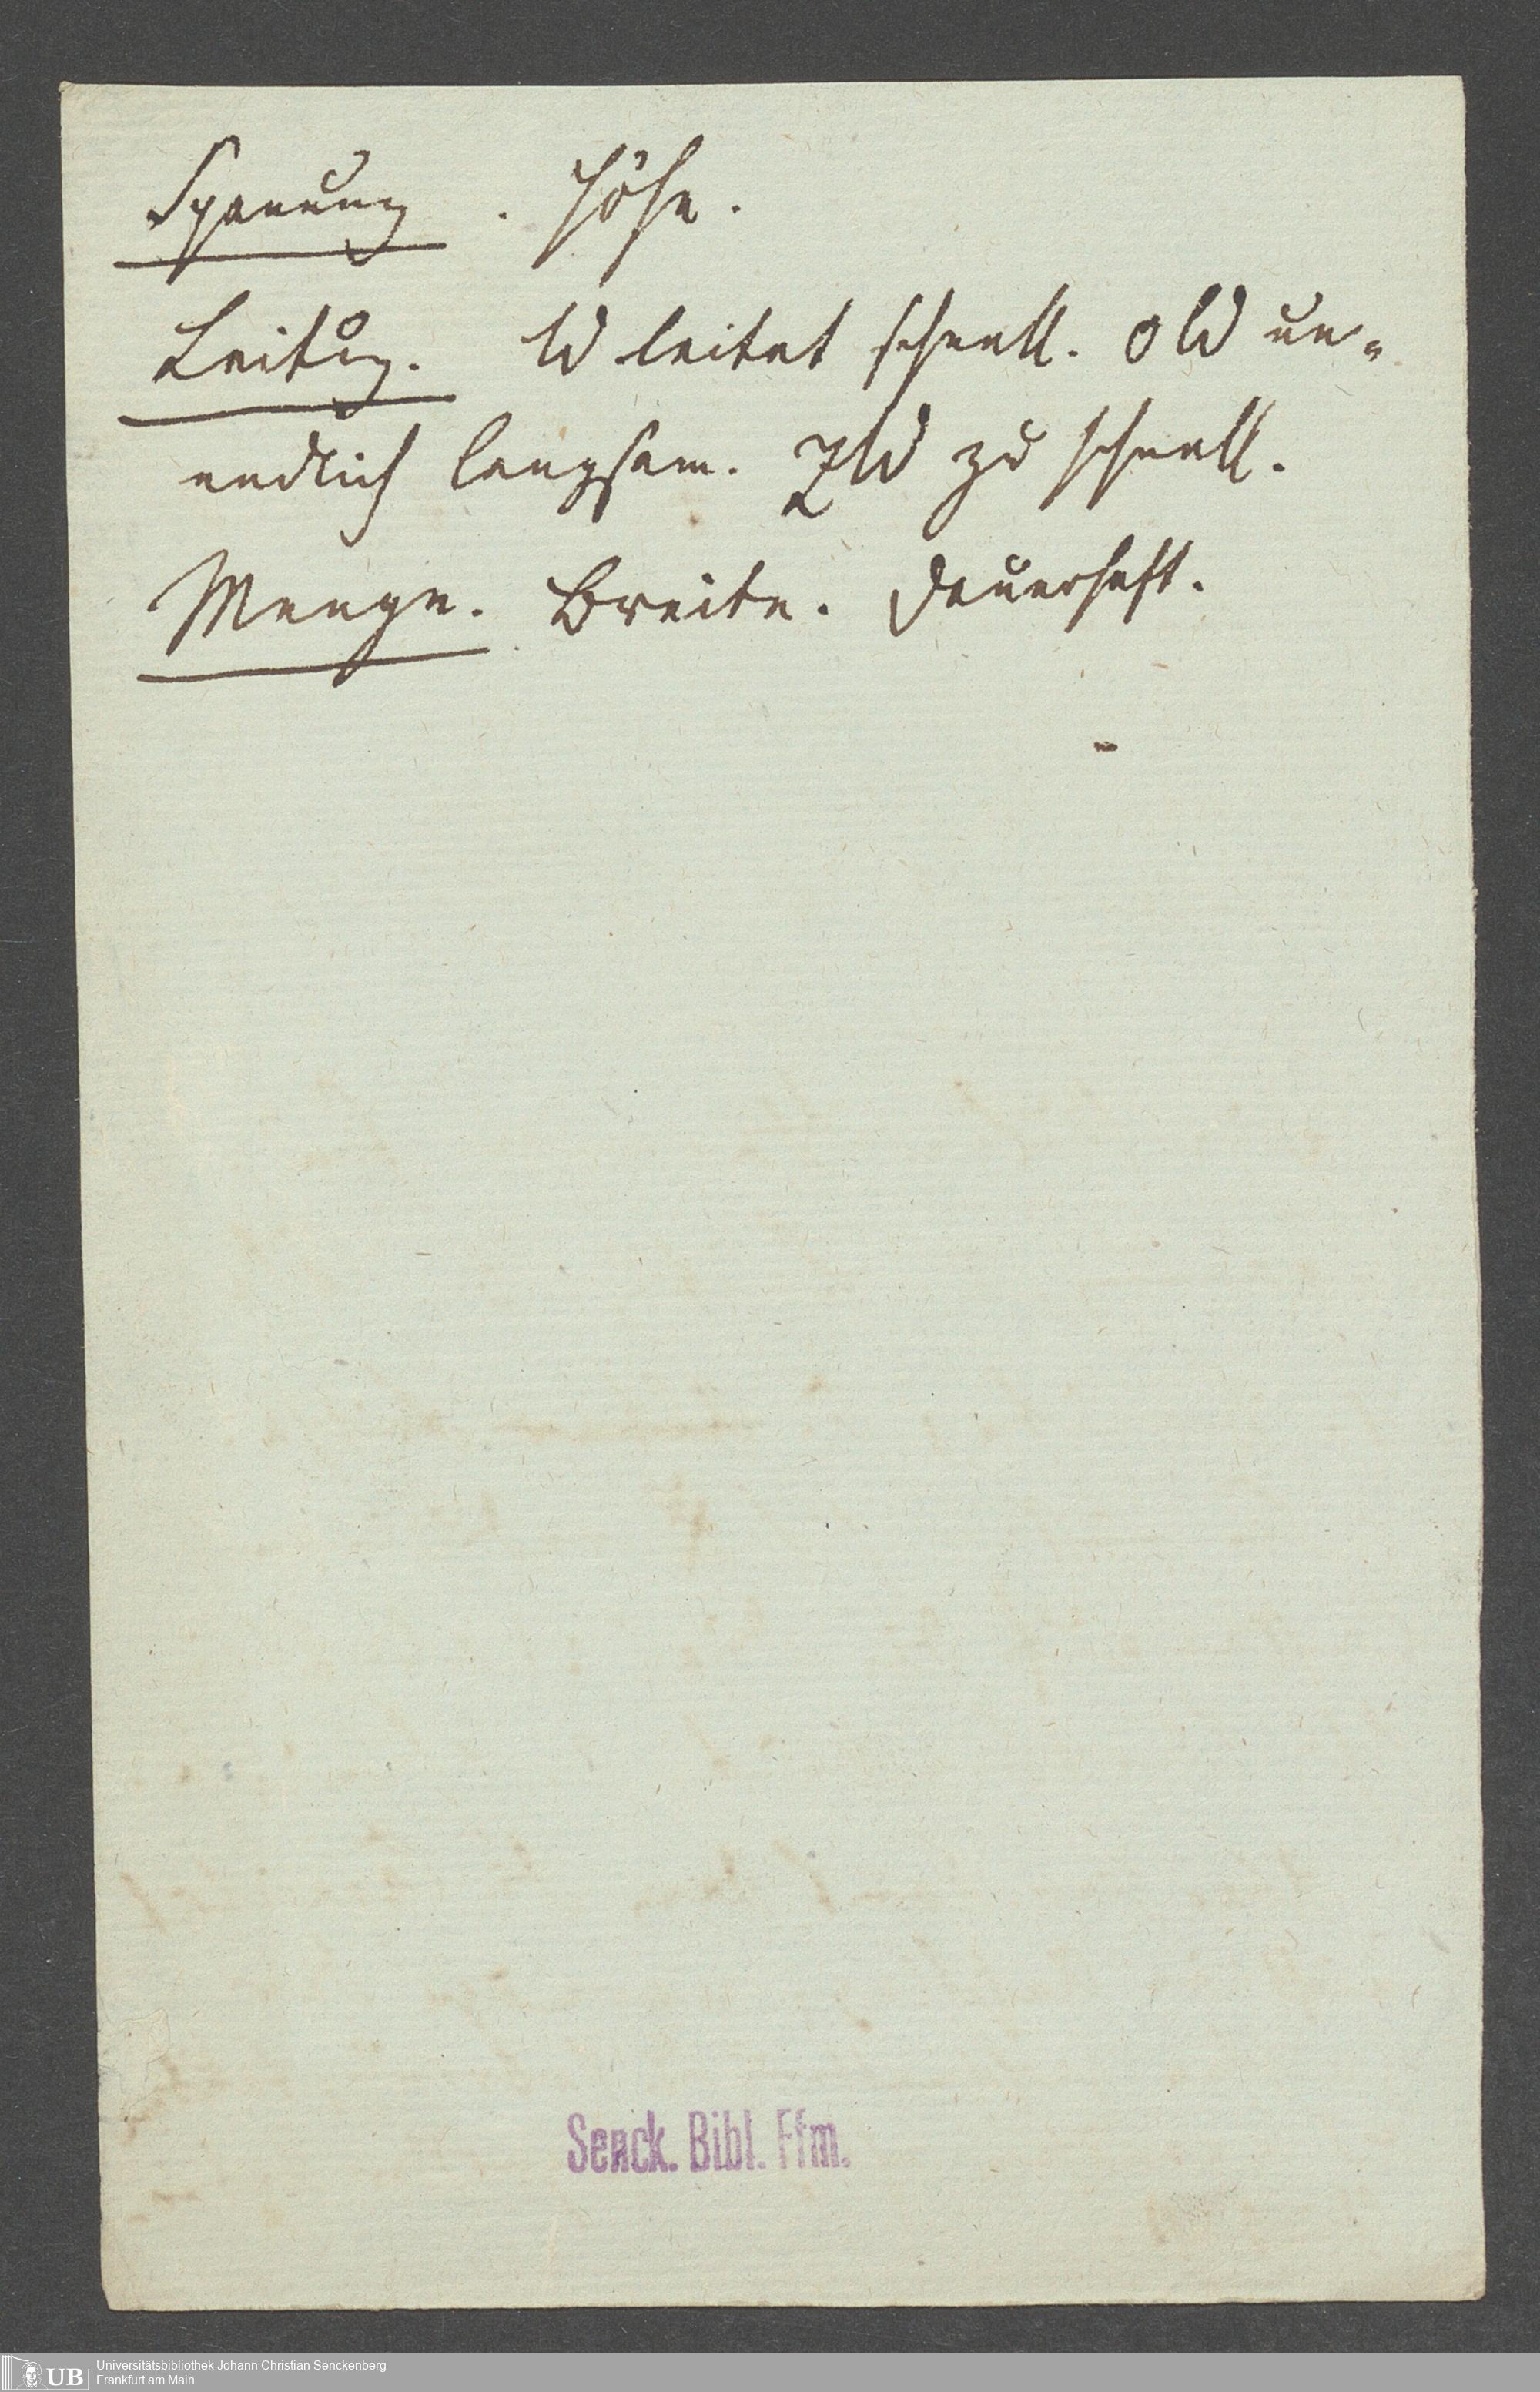 Spannung. Höhe.
Leitung. leitet schnell. un-
endlich langsam. zu schnell.
Menge. Breite. Dauerhaft.
Senck. Bibl. Ffm.
UB
Universitätsbibliothek Johann Christian Senckenberg
Frankfurt am Main